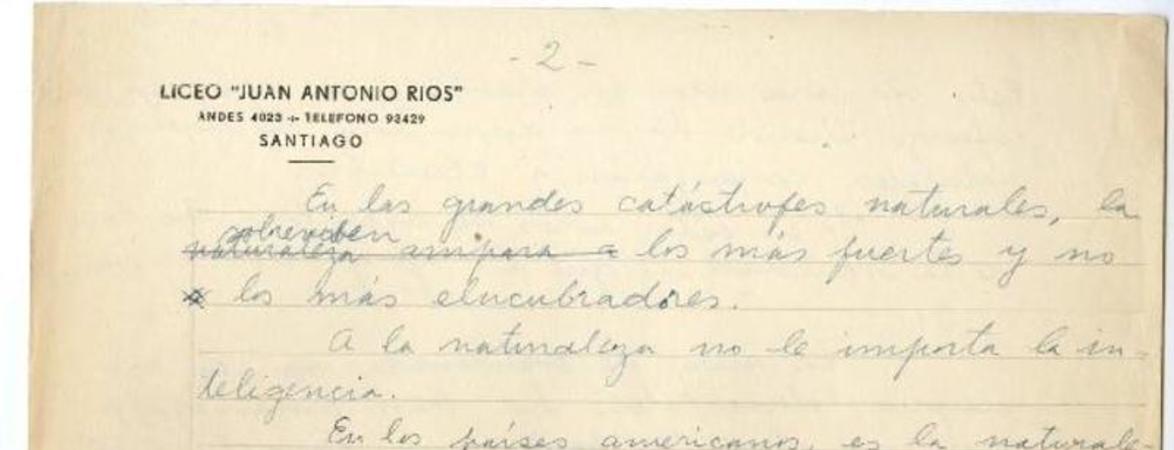 - 2 -
LICEO "JUAN ANTONIO RIOS"
ANDES 4023 -:- TELEFONO 93429
SANTIAGO
En las grandes catástrofes naturales, la
sobreviven
naturaleza ampara a los más fuertes y no
a los más elucubradores.
A la naturaleza no le importa la in-
teligencia.
En los países americanos, es la naturale-